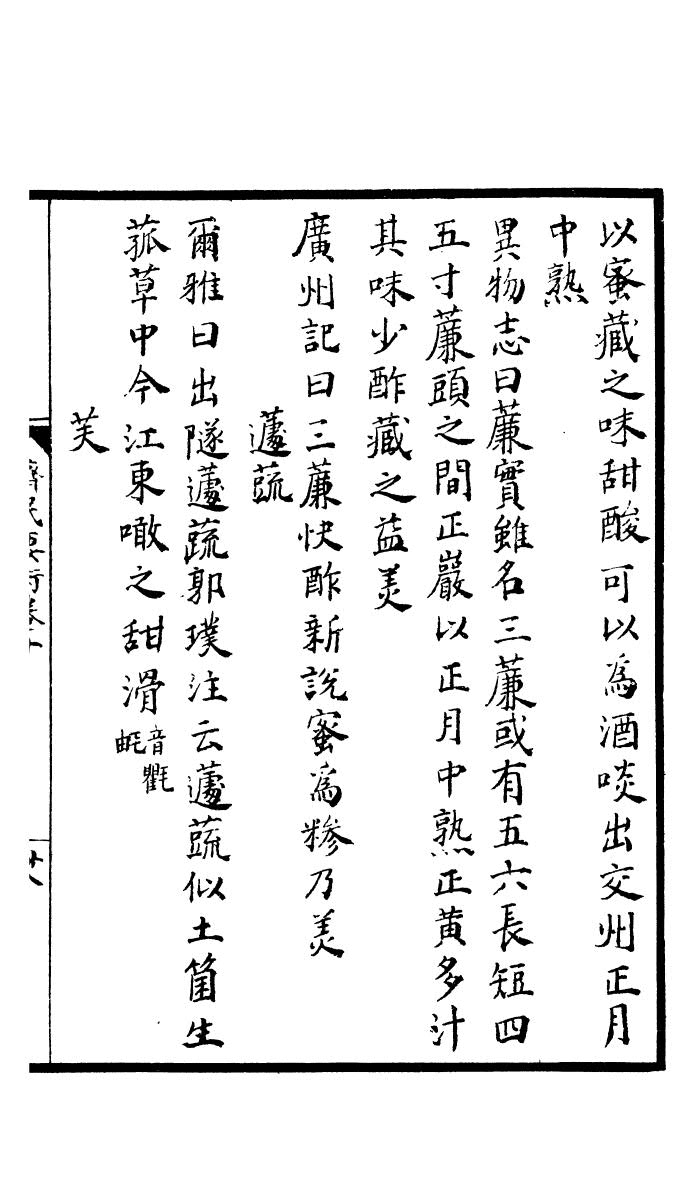 以蜜藏之味甜酸可以為酒啖出交州正月
中熟
異物志曰薕實雖名三薕或有五六長短四
五寸薕頭之間正巖以正月中熟正黄多汁
其味少酢藏之益美
廣州記曰三薕快酢新說蜜為糝乃美
蘧蔬
爾雅曰出隧蘧蔬郭璞注云蘧蔬似土菌生
菰草中今江東噉之甜滑音氍
㲘
芙
齊民要術卷十
廿八